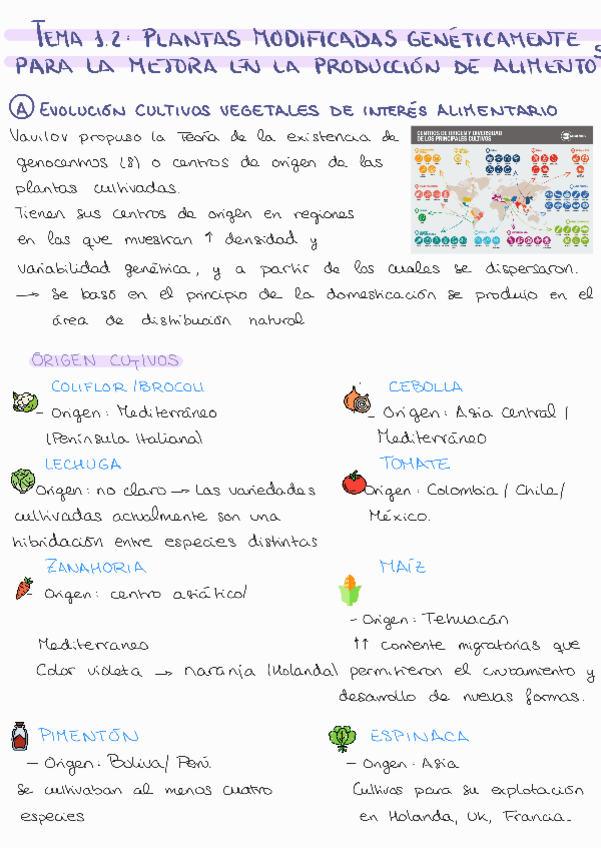 TEMA 1.2: PLANTAS MODIFICADAS GENÉTICAMENTE
PARA LA MEJORA EN LA PRODUCCIÓN DE ALIMENTOS
A EVOLUCIÓN CULTIVOS VEGETALES DE INTERÉS ALIMENTARIO
Vavilov propuso la Teoría de la existencia de
genocentros (8) o centros de origen de las
plantas cultivadas.
CENTROS DE ORIGEN Y DIVERSIDAD
DE LOS PRINCIPALES CULTIVOS
Tienen sus centros de origen en regiones
en las que muestran ↑ densidad y
variabilidad genética, y a partir de los cuales se dispersaron.
→ Se basó en el principio de la domesticación se produjo en el
área de distribución natural
ORIGEN CUTIVOS
COLIFLOR/BROCOLI
- Origen: Mediterráneo
(Península Italiana)
CEBOLLA
- Origen: Asia Central /
Mediterráneo
LECHUGA
Origen: no claro → Las variedades
cultivadas actualmente son una
hibridación entre especies distintas
TOMATE
Origen: Colombia / Chile /
México.
ZANAHORIA
- Origen: centro asiático/
Mediterraneo
Color violeta → naranja (Holanda)
MAÍZ
- Origen: Tehuacán
↑↑ corriente migratorias que
permitieron el cruzamiento y
desarrollo de nuevas formas.
PIMENTÓN
- Origen: Boliva/ Perú.
Se cultivaban al menos cuatro
especies
ESPINACA
- Origen: Asia
Cultivos para su explotación
en Holanda, UK, Francia.